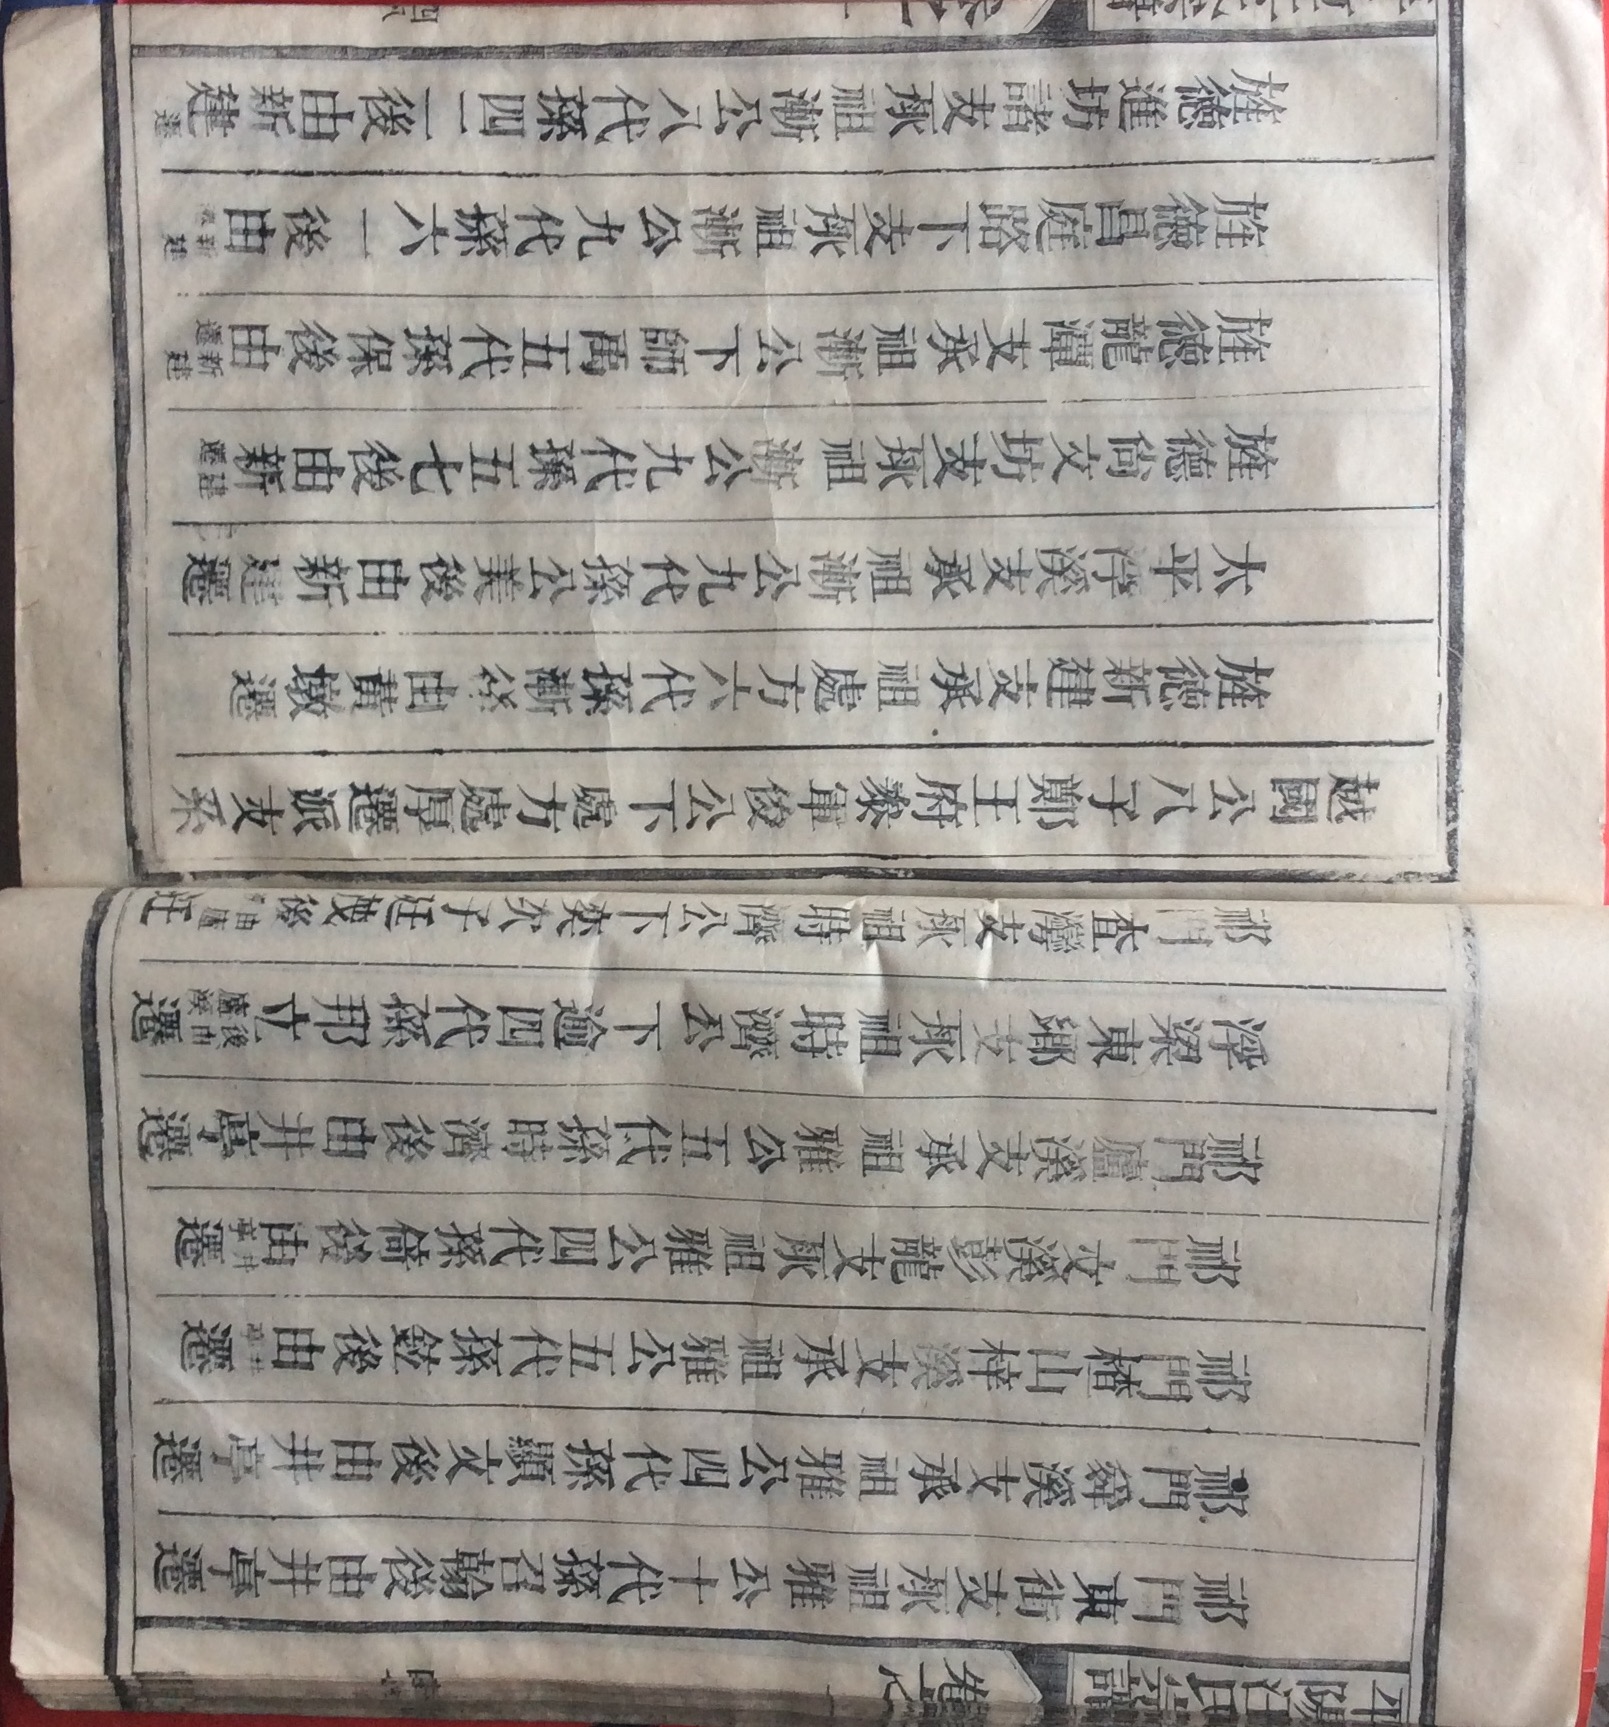 平陽汪氏宗譜 卷之一
祁門東街支承祖雅公十代孫召翰後由井亭遷
祁門溪支承祖雅公四代孫顯文後由井亭遷
祁門楂山梓溪支承祖雅公五代孫後由井亭遷
祁門文溪彭龍支承祖雅公四代孫倚後由井亭遷
祁門廬溪支承祖雅公五代孫時濟後由井亭遷
浮梁東鄉支承祖時濟公下逾四代孫邦立後由廬溪遷
祁門查灣支承祖時濟公下英六子廷雙後由廬
越國公八子鄭王府叅軍俊公下處方處厚遷派支系
旌德新建支承祖處方六代孫漸後由黃墩遷
太平浮溪支承祖漸公九代孫公美後由新建遷
旌德尚文坊支承祖漸公九代孫五七後由新建遷
旌德龍潭支承祖漸公下師禹五代孫保後由新建遷
旌德昌庭路下支承祖漸公九代孫六一後由新建
旌德進坊諸支承祖漸公八代孫四二後由新建遷